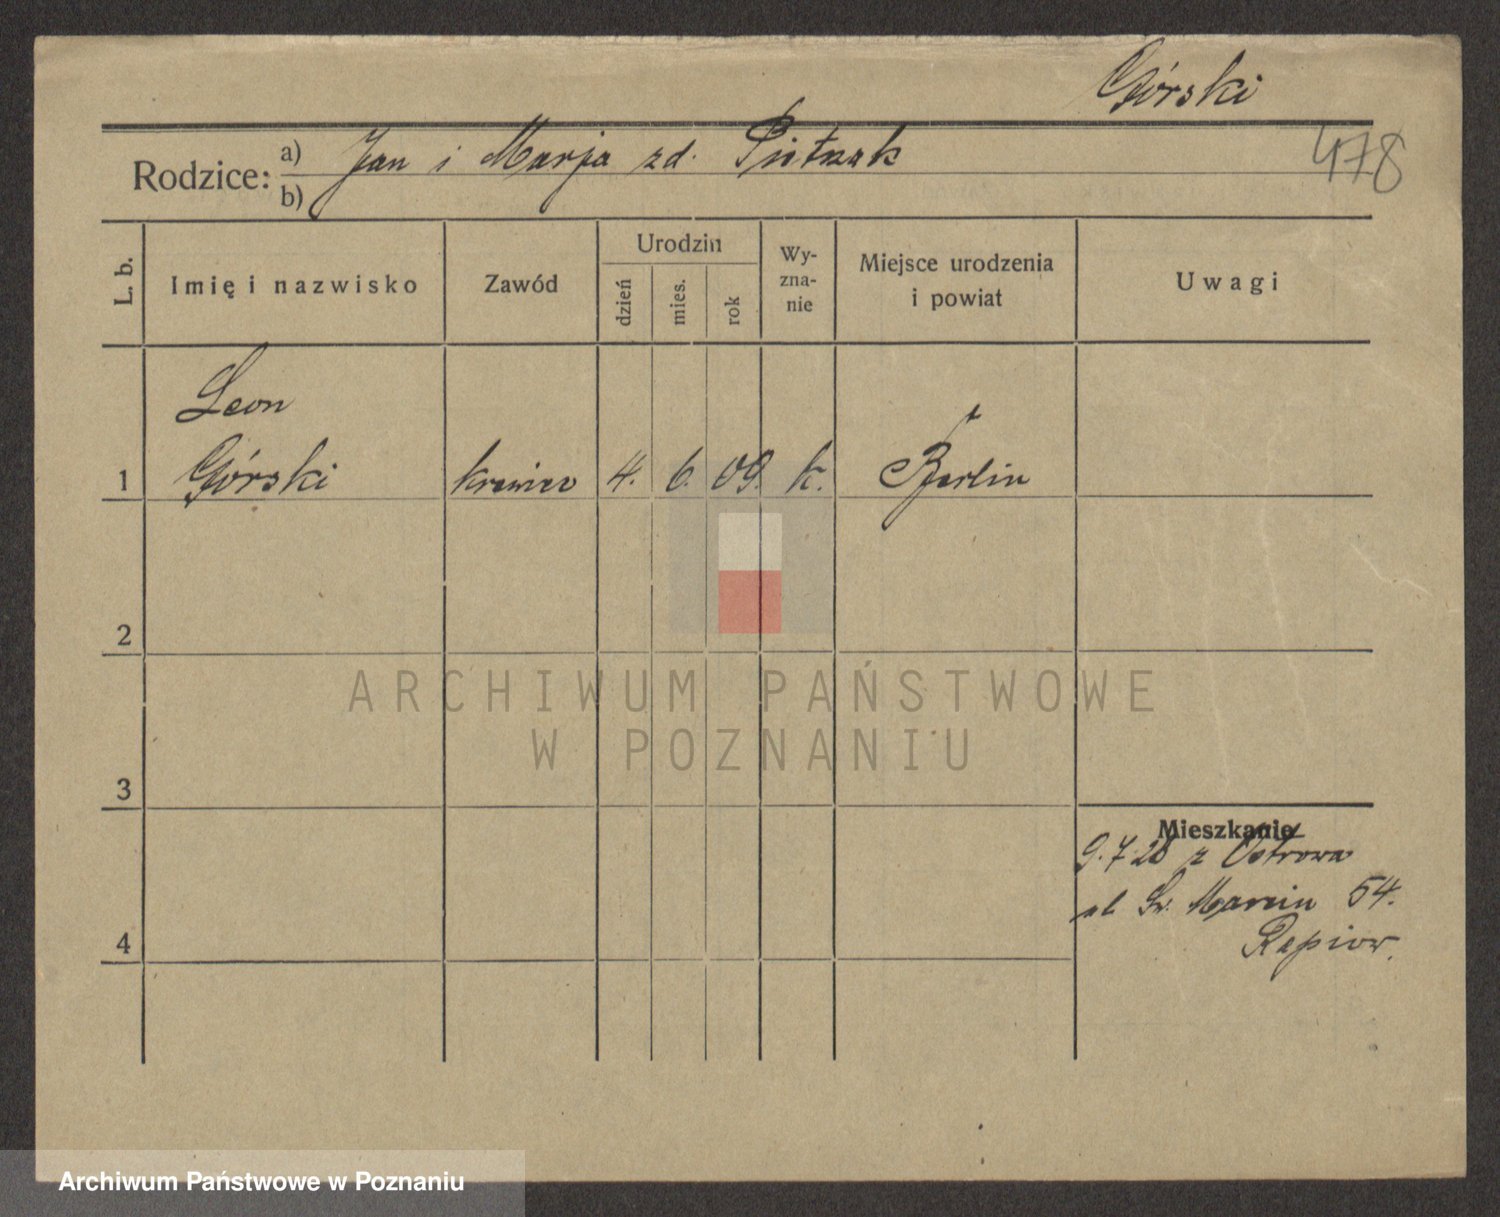 Górski
478
Rodzice: a) Jan i Marja zd. Pietrzak
b)
L. b.
Imię i nazwisko
Zawód
Urodzin
dzień
mies.
rok
Wy-
zna-
nie
Miejsce urodzenia
i powiat
Uwagi
Leon
1 Górski krawiec 4. 6. 09. k. Berlin
2
ARCHIWUM PAŃSTWOWE
W POZNANIU
3
Mieszkanie
9.7.28 z Ostrowa
4
ul. Św. Marcin 54.
Archiwum Państwowe w Poznaniu